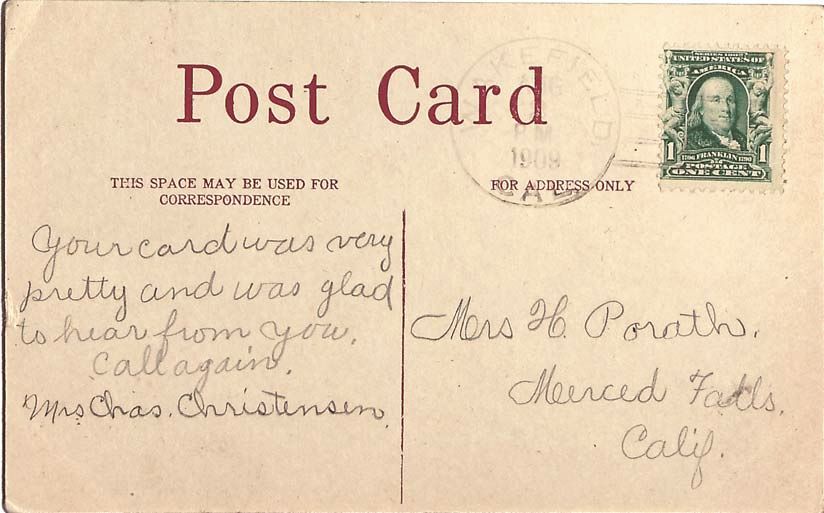 Post Card
WAKEFIELD
AUG
P.M.
1909
CAL
SERIES 1902
UNITED STATES OF
AMERICA
1 1706 FRANKLIN 1790 1
POSTAGE
ONE CENT
THIS SPACE MAY BE USED FOR
CORRESPONDENCE
FOR ADDRESS ONLY
Your card was very
pretty and was glad
to hear from you.
Call again.
Mrs Chas. Christensen.
Mrs H. Porath.
Merced Falls.
Calif.